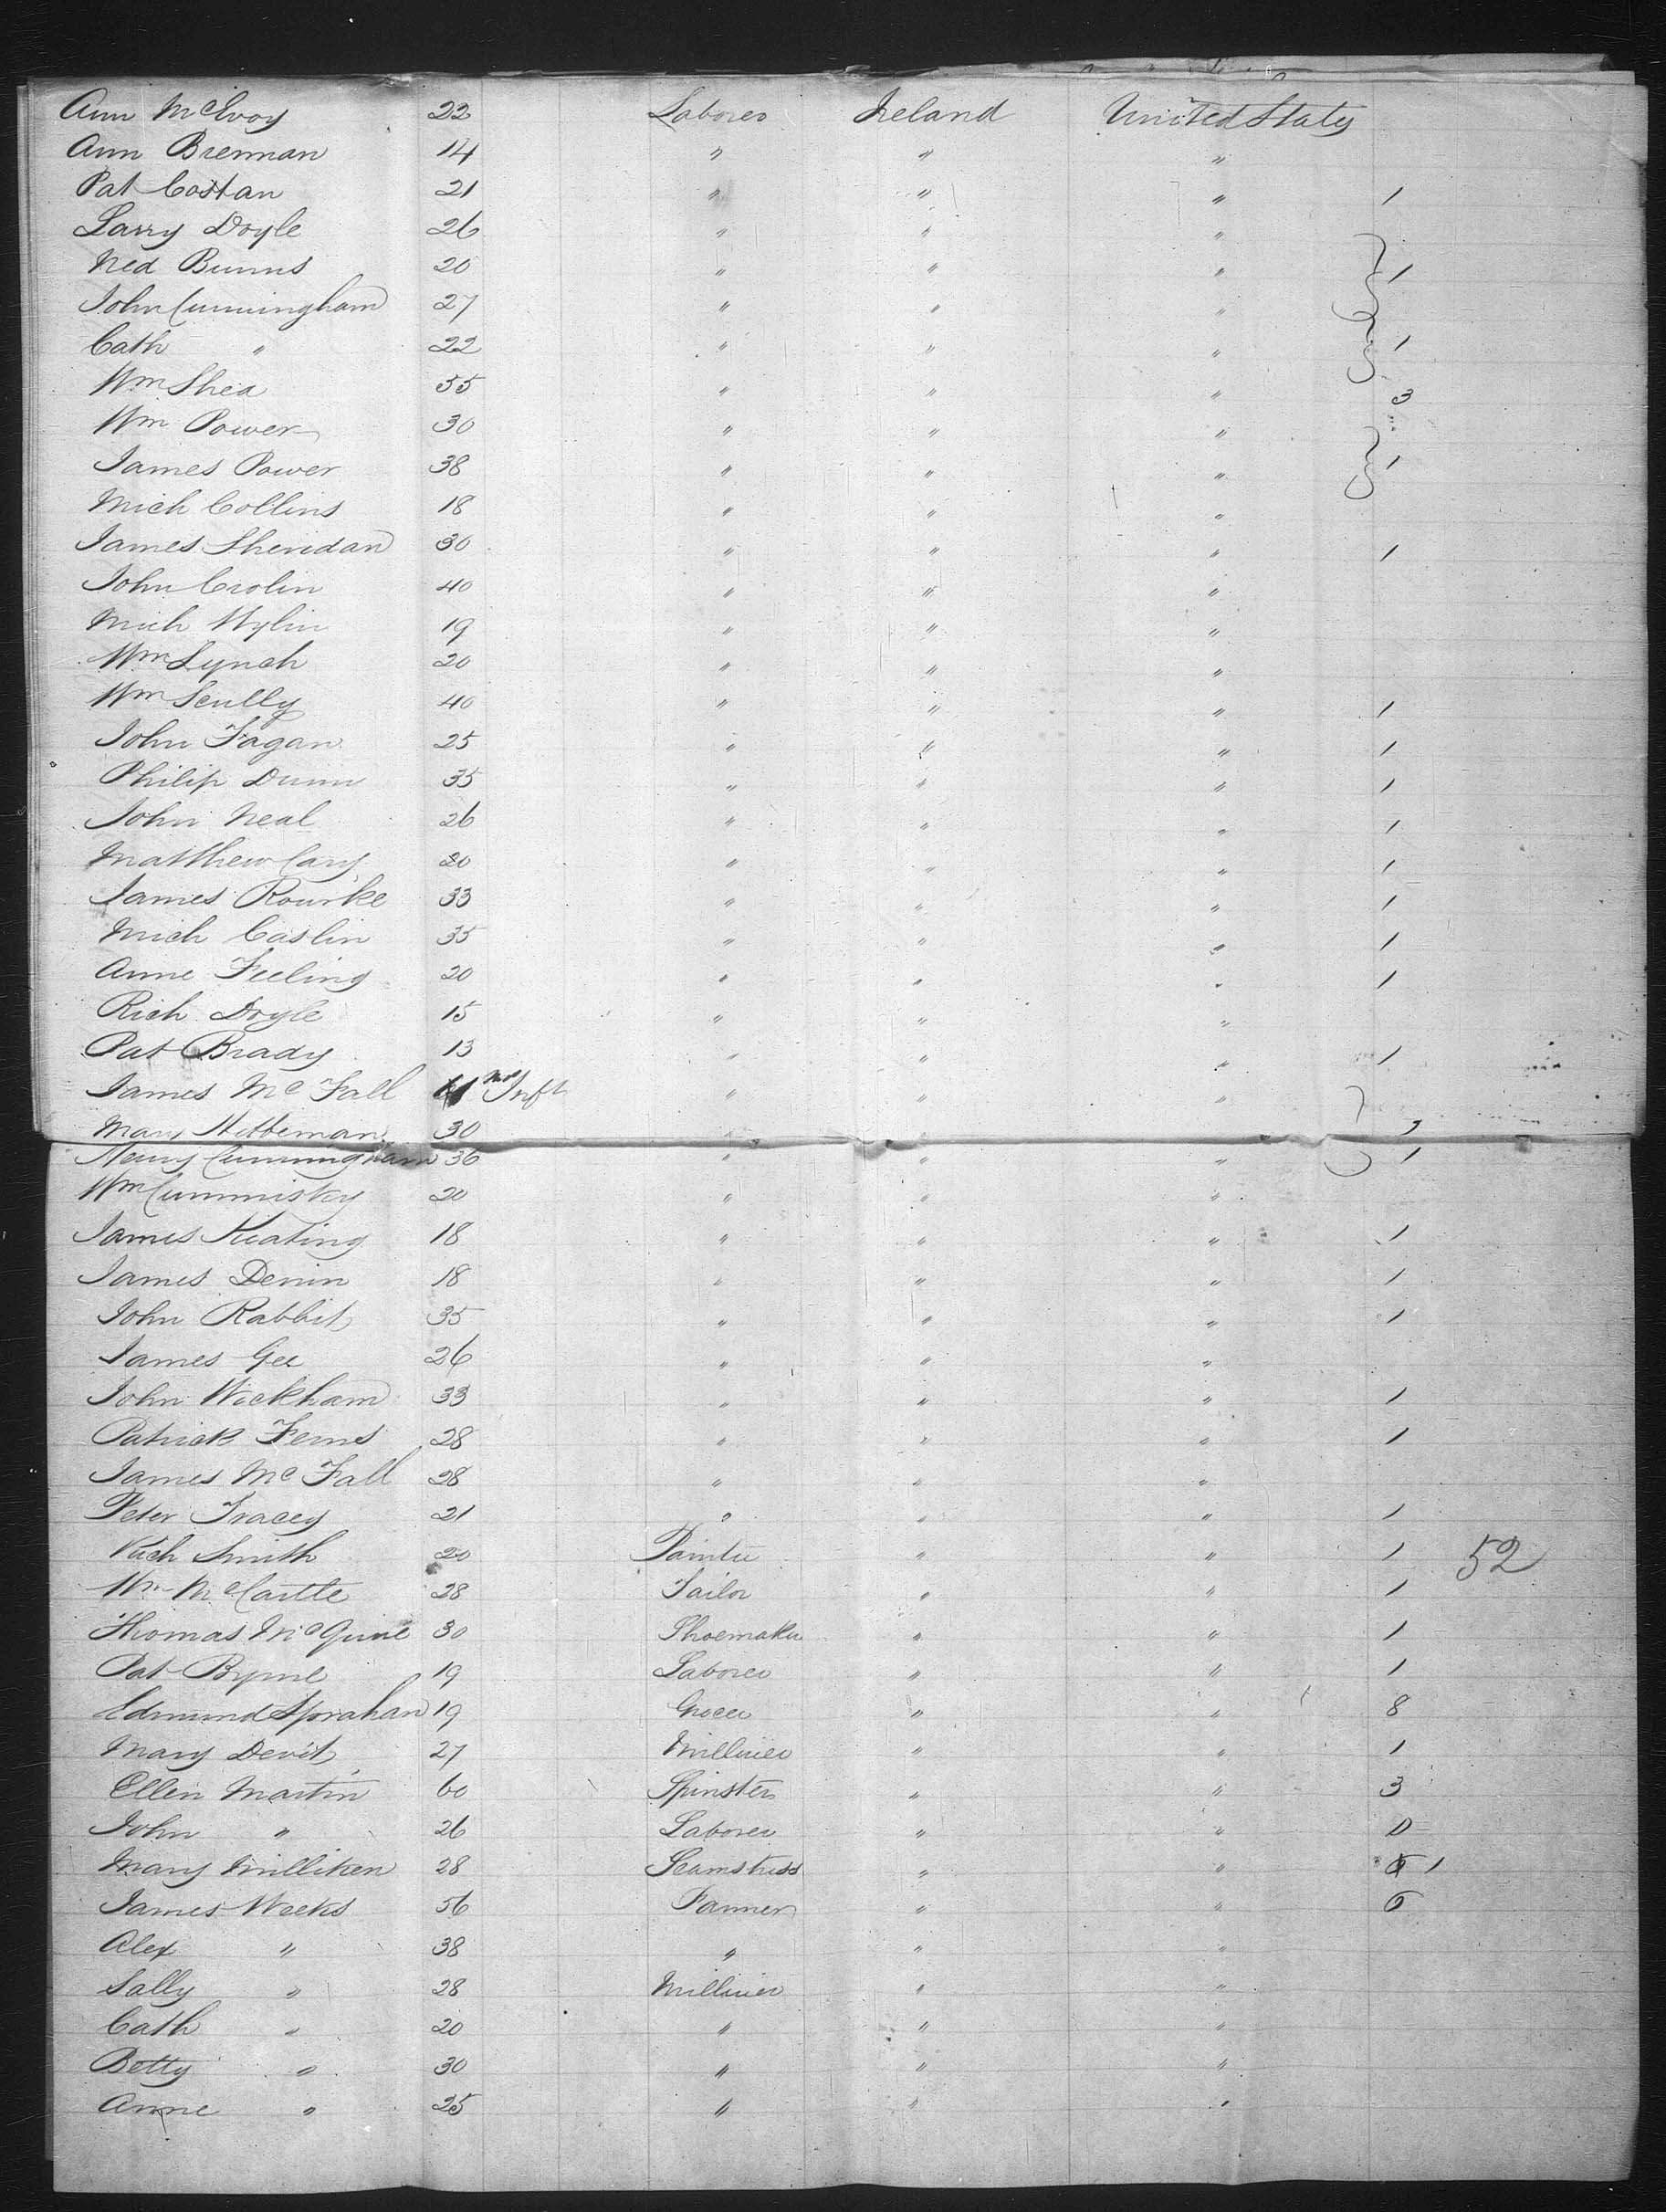 Ann McEvoy 22 Laborer Ireland United States
Ann Brennan 14 " " "
Pat Costan 21 " " " 1
Larry Doyle 26 " " "
Ned Burns 20 " " " 1
John Cunningham 27 " " "
Cath " 22 " " " 1
Wm Shea 55 " " " 3
Wm Power 30 " " "
James Power 38 " " " 1
Mich Collins 18 " " "
James Sheridan 30 " " " 1
John Crolin 40 " " "
Mich Wylin 19 " " "
Wm Lynch 20 " " "
Wm Scully 40 " " " 1
John Fagan 25 " " " 1
Philip Dunn 35 " " " 1
John Neal 26 " " " 1
Matthew Cary 20 " " " 1
James Rourke 33 " " " 1
Mich Caslin 35 " " " 1
Anne Feeling 20 " " " 1
Rich Doyle 15 " " "
Pat Brady 13 " " " 1
James Mc Fall 11 mos Inft " " "
Mary 30 "
Henry Cunningham 36 " " " 1
Wm Cummisky 20 " " "
James Keating 18 " " " 1
James Denin 18 " " " 1
John Rabbit 35 " " " 1
James Gee 26 " " "
John Wickham 33 " " " 1
Patrick Ferns 28 " " " 1
James Mc Fall 28 " " "
Peter Tracey 21 " " " 1
Rich Smith 20 Painter " " 1 52
Wm McCartle 28 Tailor " " 1
Thomas McGuire 30 Shoemaker " " 1
Pat Byrne 19 Laborer " " 1
Edmund 19 Grocer " " 8
Mary Devit 27 Milliner " " 1
Ellen Martin 60 Spinster " " 3
John " 26 Laborer " " 0
Mary Milliken 28 Seamstress " " 1
James Weeks 56 Farmer " " 6
Alex " 38 " " "
Sally " 28 Milliner " "
Cath " 20 " " "
Betty " 30 " " "
Anne " 25 " " "